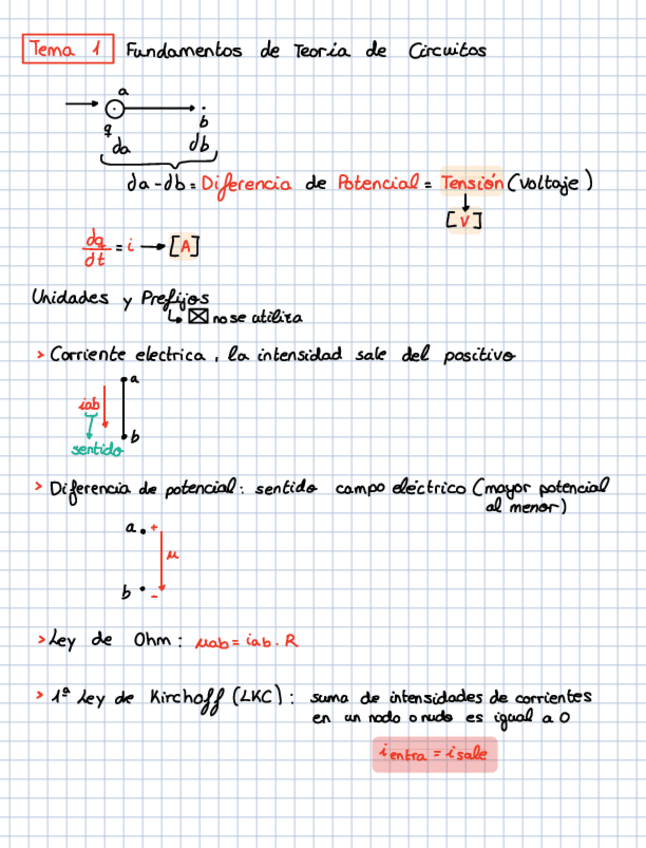 Tema 1 Fundamentos de Teoría de Circuitos
a
q
b
da db
da - db = Diferencia de Potencial = Tensión (Voltaje)
[V]
dq/dt = i → [A]
Unidades y Prefijos
↳ ☒ no se utiliza
> Corriente electrica, la intensidad sale del positivo
a
iab
b
sentido
> Diferencia de potencial: sentido campo eléctrico (mayor potencial
al menor)
a +
μ
b -
> Ley de Ohm: μab = iab · R
> 1ª Ley de Kirchoff (LKC): suma de intensidades de corrientes
en un nodo o nudo es igual a 0
i entra = i sale